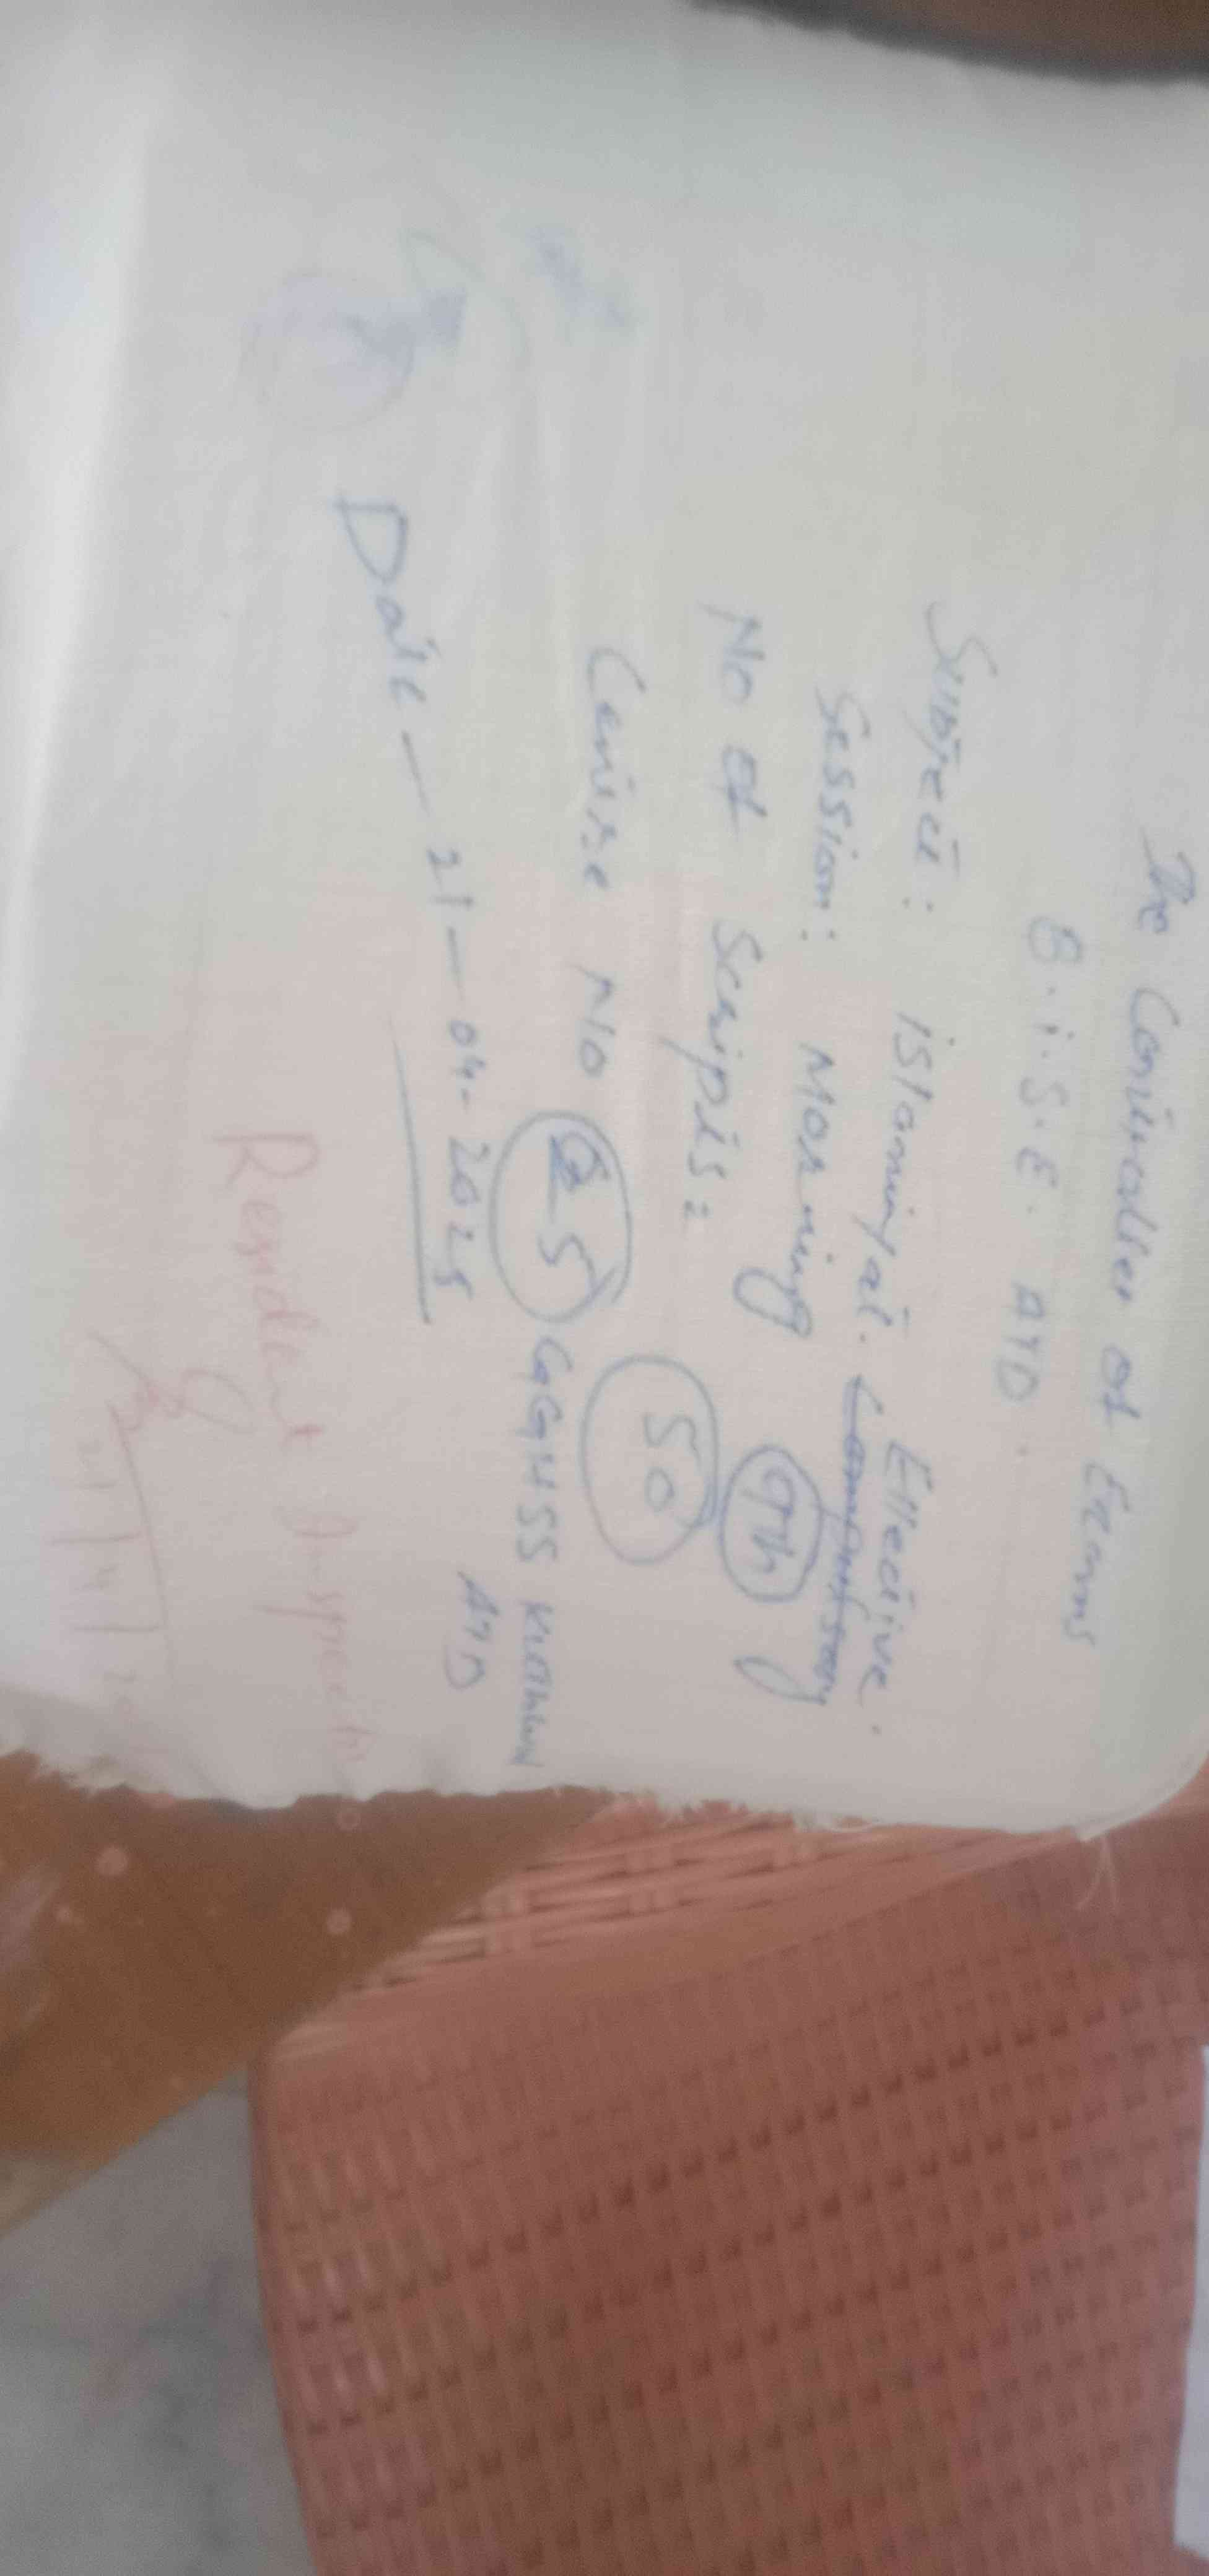 The Controller of Exams
B.i.S.E. ATD.
Subject: islamiyat. Effective.
Session: Morning 9th
No of Scripts: 50
Centre No 25 GGHSS
ATD
Date — 21-04-2025
Resident Inspector
21/4/